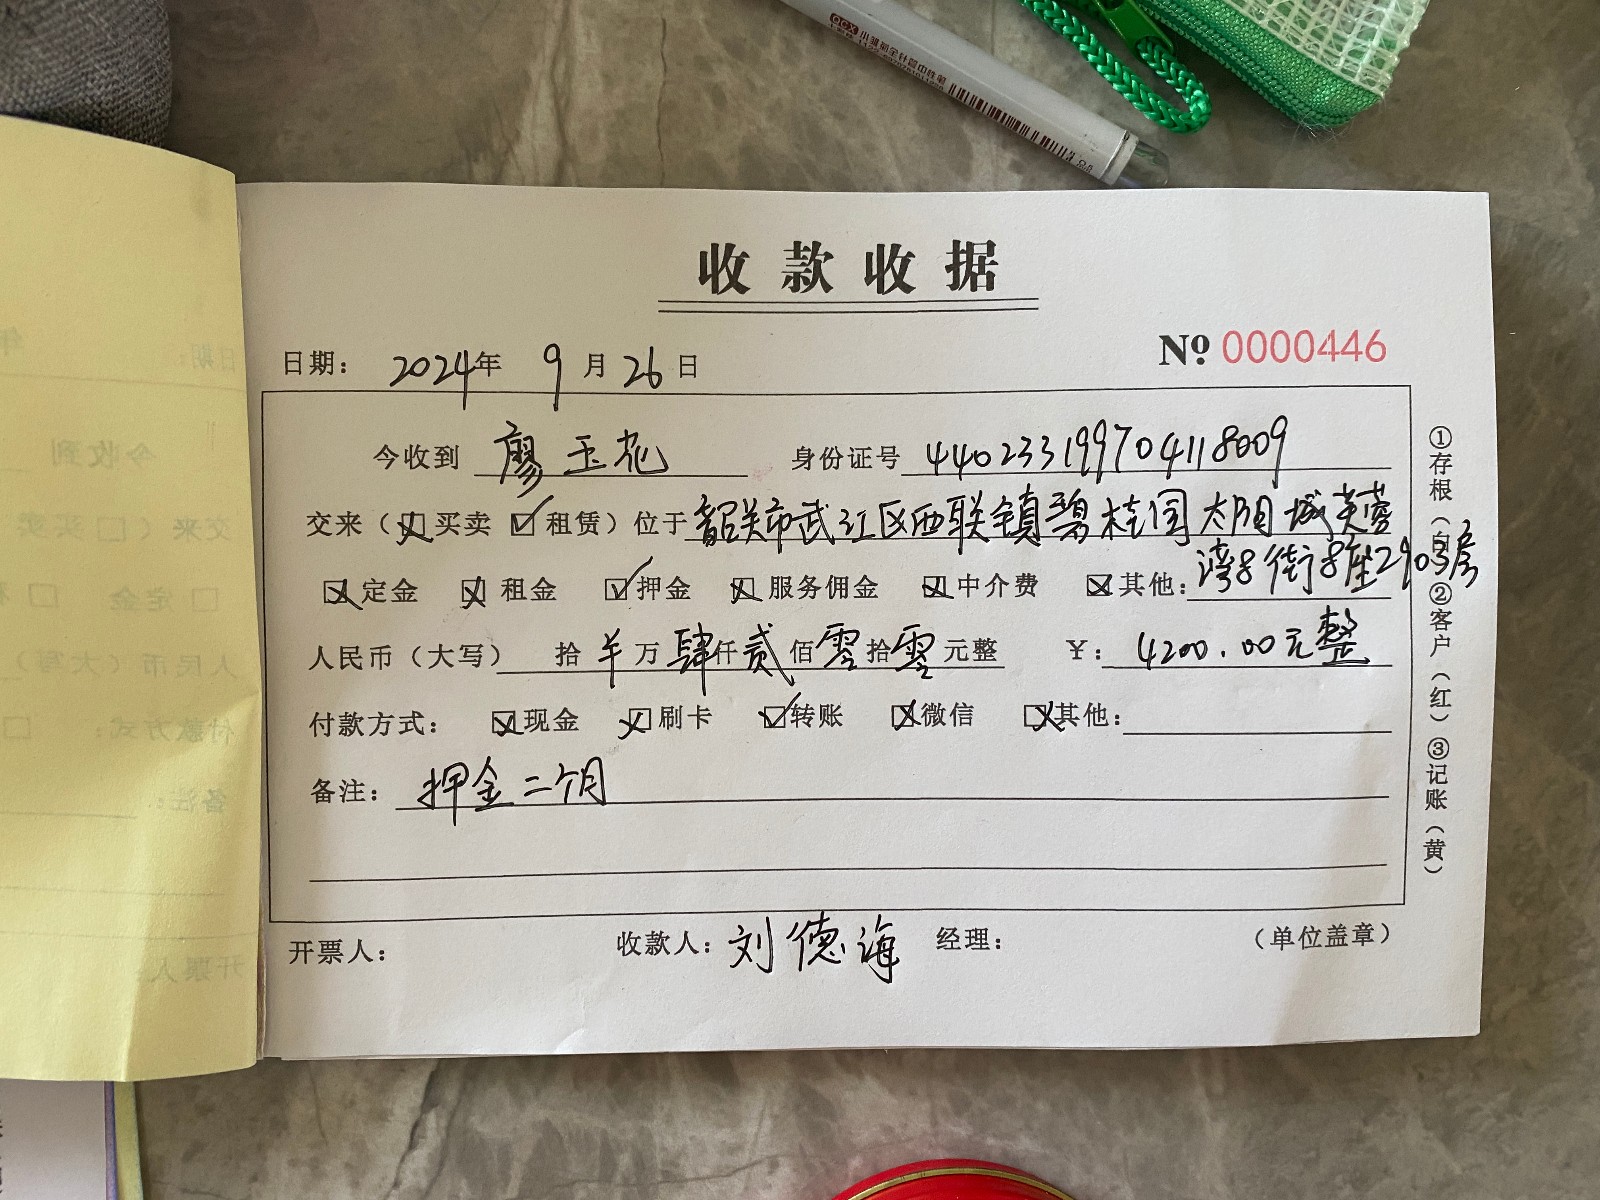 小雏菊全针管中性笔
收款收据
日期: 2024年 9月26日 Nº 0000446
今收到 廖玉花 身份证号 440233199704118009
交来（☒买卖 ☑租赁）位于韶关市武江区西联镇碧桂园太阳城芙蓉
湾8街8座2903房
☒定金 ☒租金 ☑押金 ☒服务佣金 ☒中介费 ☒其他:
人民币（大写） 拾 羊 万 肆仟贰佰零拾零元整 ¥: 4200.00元整
付款方式: ☒现金 ☒刷卡 ☑转账 ☒微信 ☒其他:
备注: 押金二个月
开票人: 收款人: 刘德海 经理: （单位盖章）
①存根（白）②客户（红）③记账（黄）